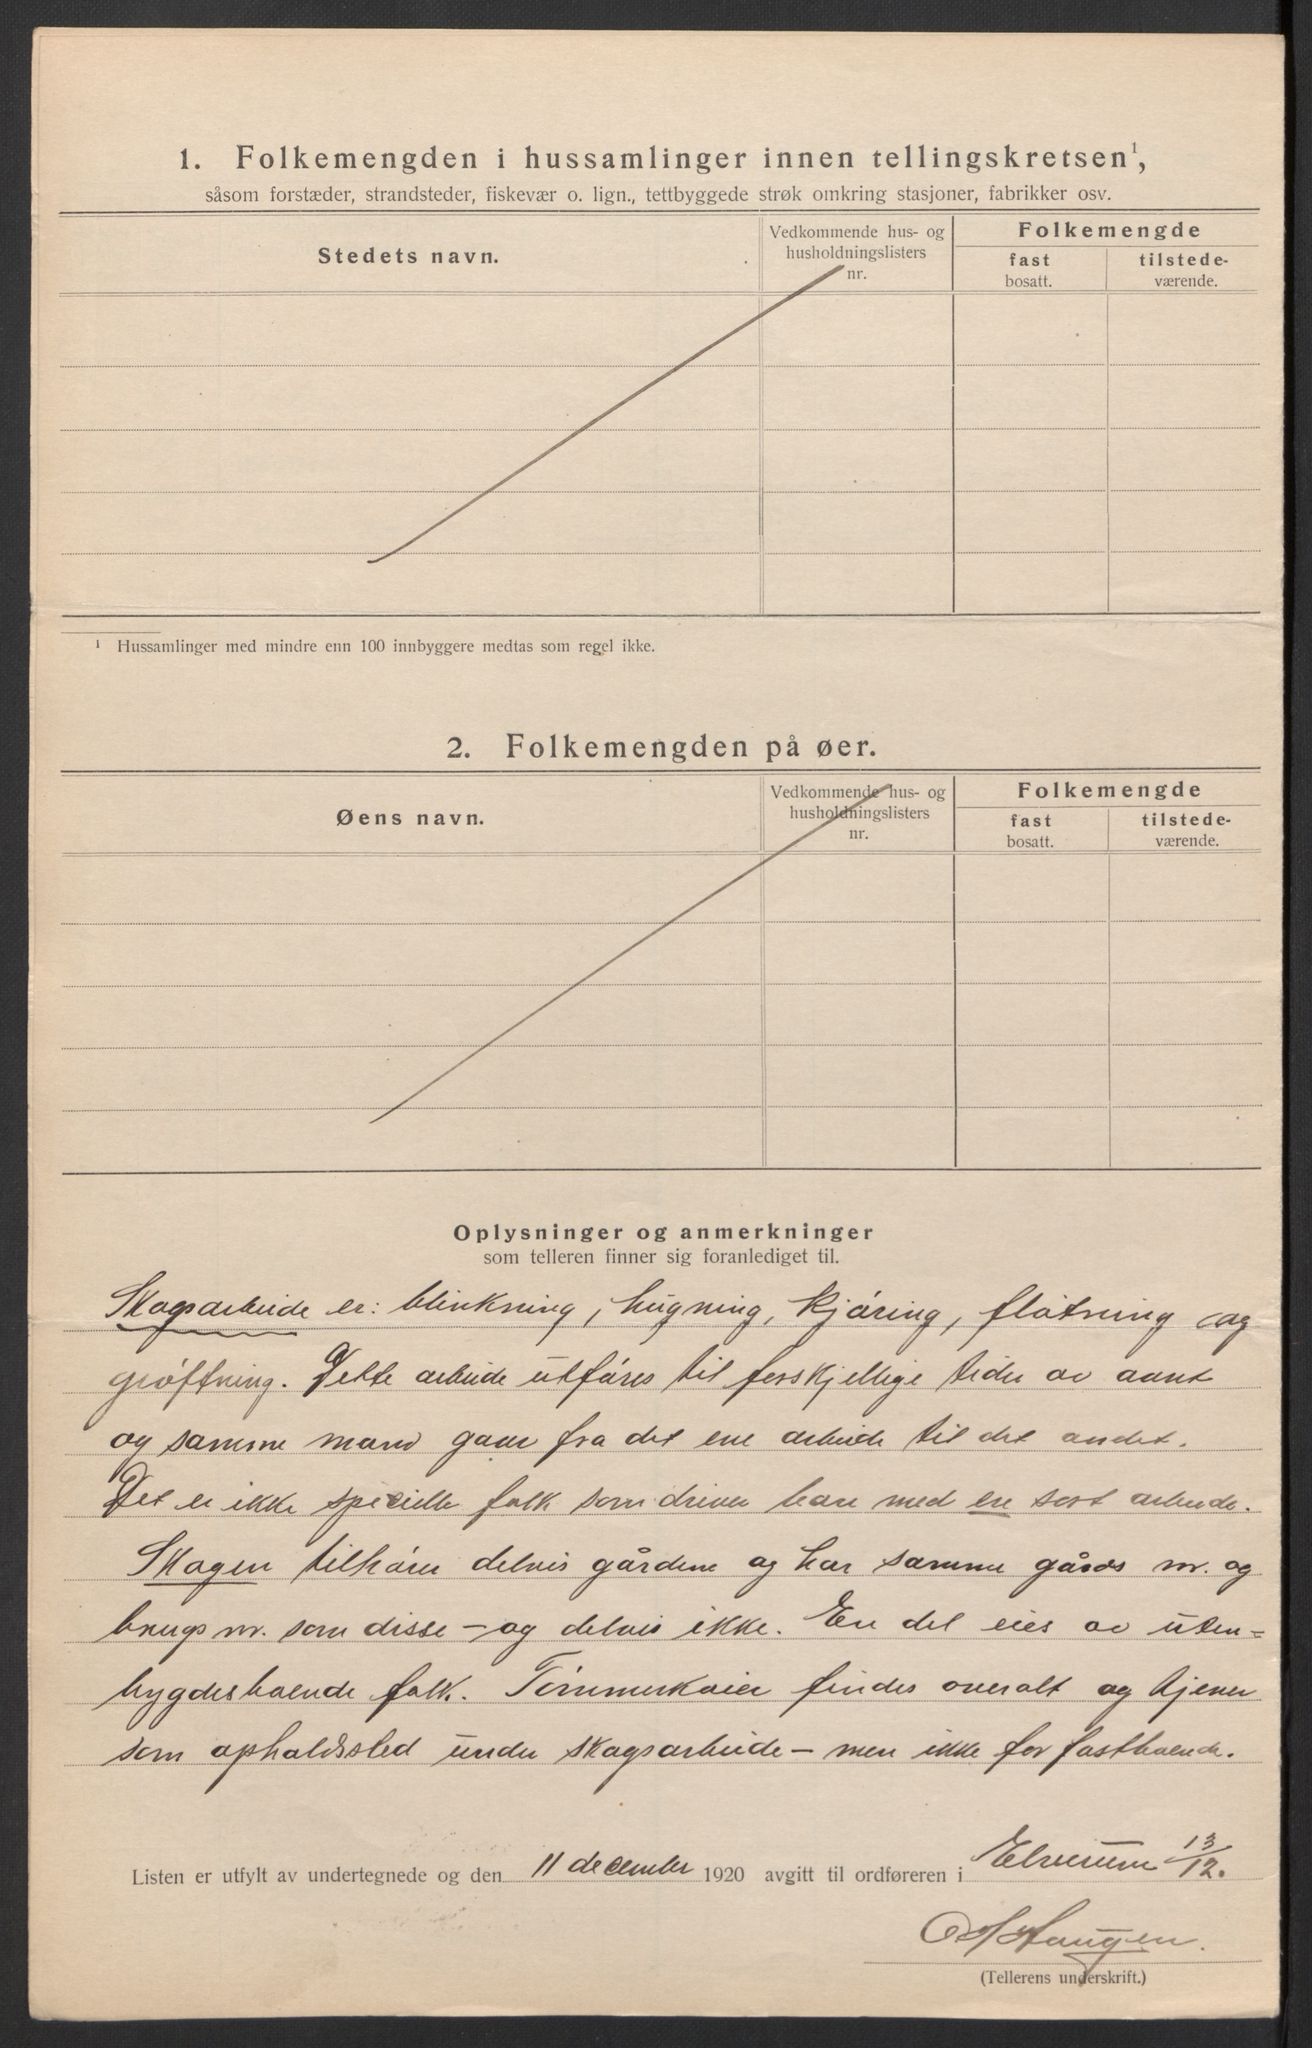 1. Folkemengden i hussamlinger innen tellingskretsen¹,
såsom forstæder, strandsteder, fiskevær o. lign., tettbyggede strøk omkring stasjoner, fabrikker osv.
Stedets navn.
Vedkommende hus- og
husholdningslisters
nr.
Folkemengde
fast
bosatt.
tilstede-
værende.
¹ Hussamlinger med mindre enn 100 innbyggere medtas som regel ikke.
2. Folkemengden på øer.
Øens navn.
Vedkommende hus- og
husholdningslisters
nr.
Folkemengde
fast
bosatt.
tilstede-
værende.
Oplysninger og anmerkninger
som telleren finner sig foranlediget til.
Skogsarbeide er: blinkning, hugning, kjöring, flötning og
gröftning. Dette arbeide utföres til forskjellige tider av aaret
og samme mand gaar fra det ene arbeide til det andet.
Det er ikke specielle folk som driver bare med en sort arbeide.
Skogen tilhörer delvis gårdene og har samme gårds nr. og
brugs nr. som disse – og delvis ikke. En del eies av uten-
bygdsboende folk. Tömmerkoier findes overalt og tjener
som opholdssted under skogsarbeide – men ikke for fastboende.
Listen er utfylt av undertegnede og den 11 december 1920 avgitt til ordføreren i Elverum 13/12.
Haugen.
(Tellerens underskrift.)